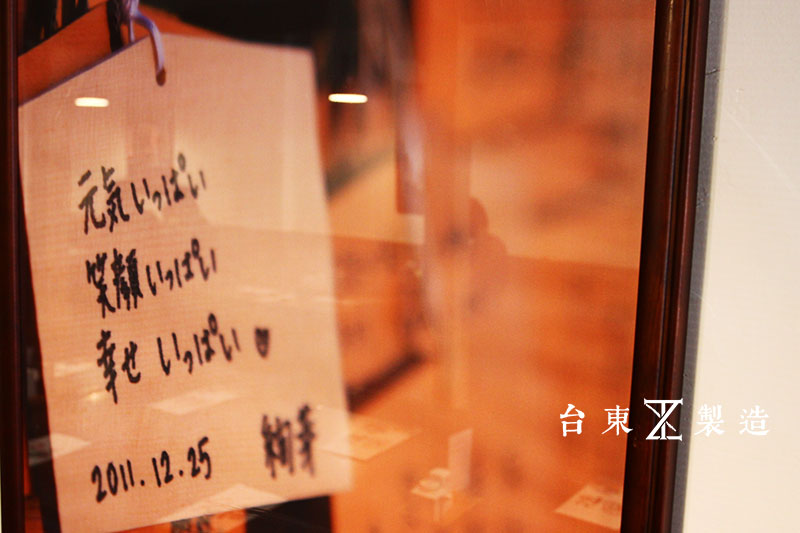 元気いっぱい
笑顔いっぱい
幸せいっぱい♥
2011.12.25 絢芽
台東製造